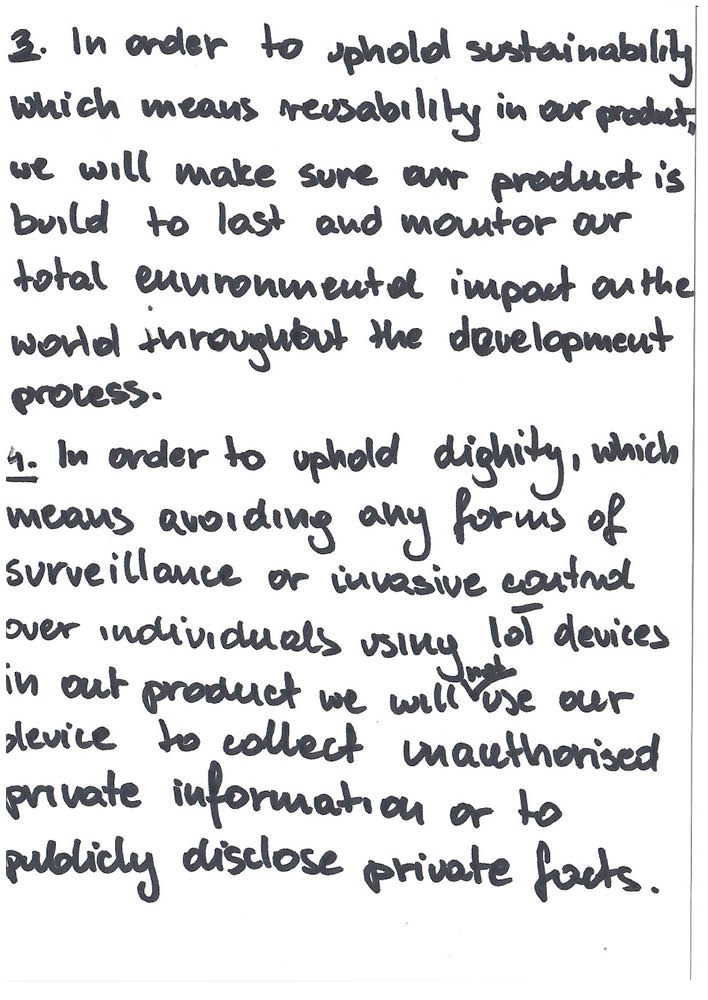 3. In order to uphold sustainability
which means reusability in our product,
we will make sure our product is
build to last and monitor our
total environmental impact on the
world throughout the development
process.
4. In order to uphold dighity, which
means avoiding any forms of
surveillance or invasive control
over individuals using IoT devices
in out product we will not use our
device to collect unauthorised
private information or to
publicly disclose private facts.